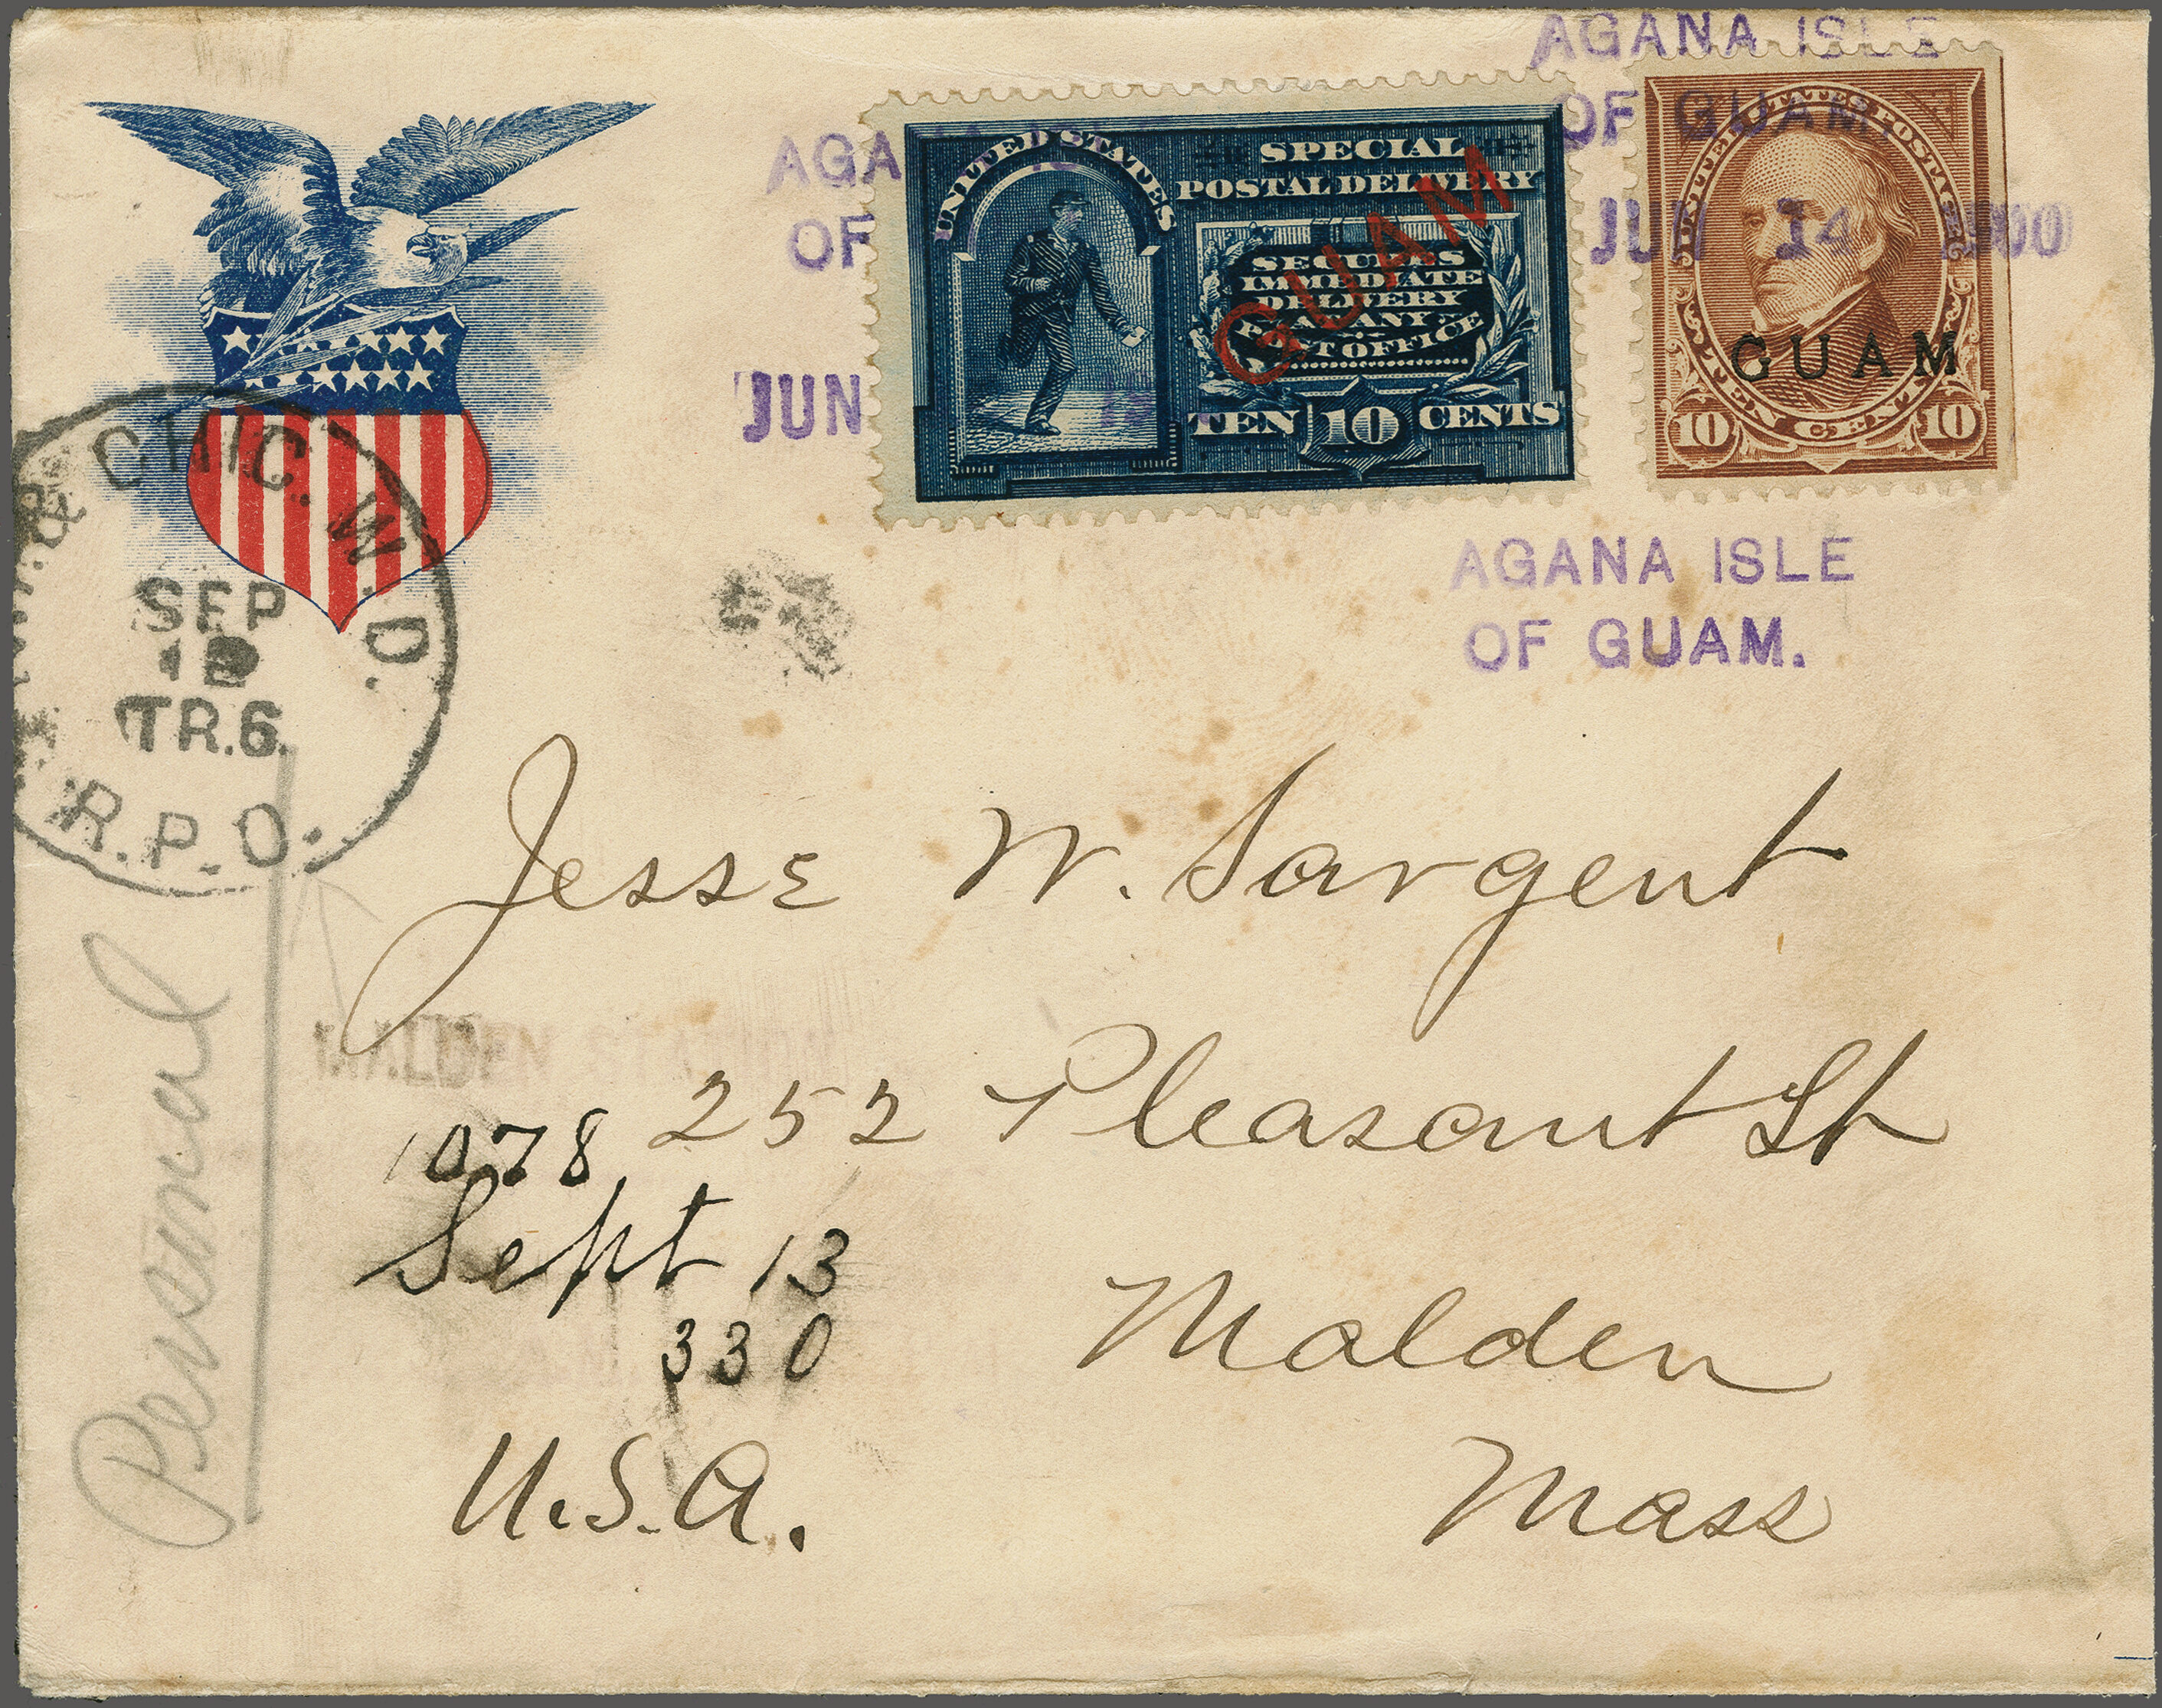 AGANA ISLE
OF GUAM.
JUN 14 1900
AGA
OF
JUN
UNITED STATES
SPECIAL
POSTAL DELIVERY
SECURES
IMMEDIATE
DELIVERY
AT ANY
POST OFFICE
GUAM
TEN 10 CENTS
UNITED STATES POSTAGE
GUAM
TEN CENTS
10 10
AGANA ISLE
OF GUAM.
& CHIC. W.D.
SEP
12
TR.6.
R.P.O.
Personal
Jesse W. Sargent
MALDEN STATION
252 Pleasant St
1078
Sept 13
330
Malden
Mass
U.S.A.